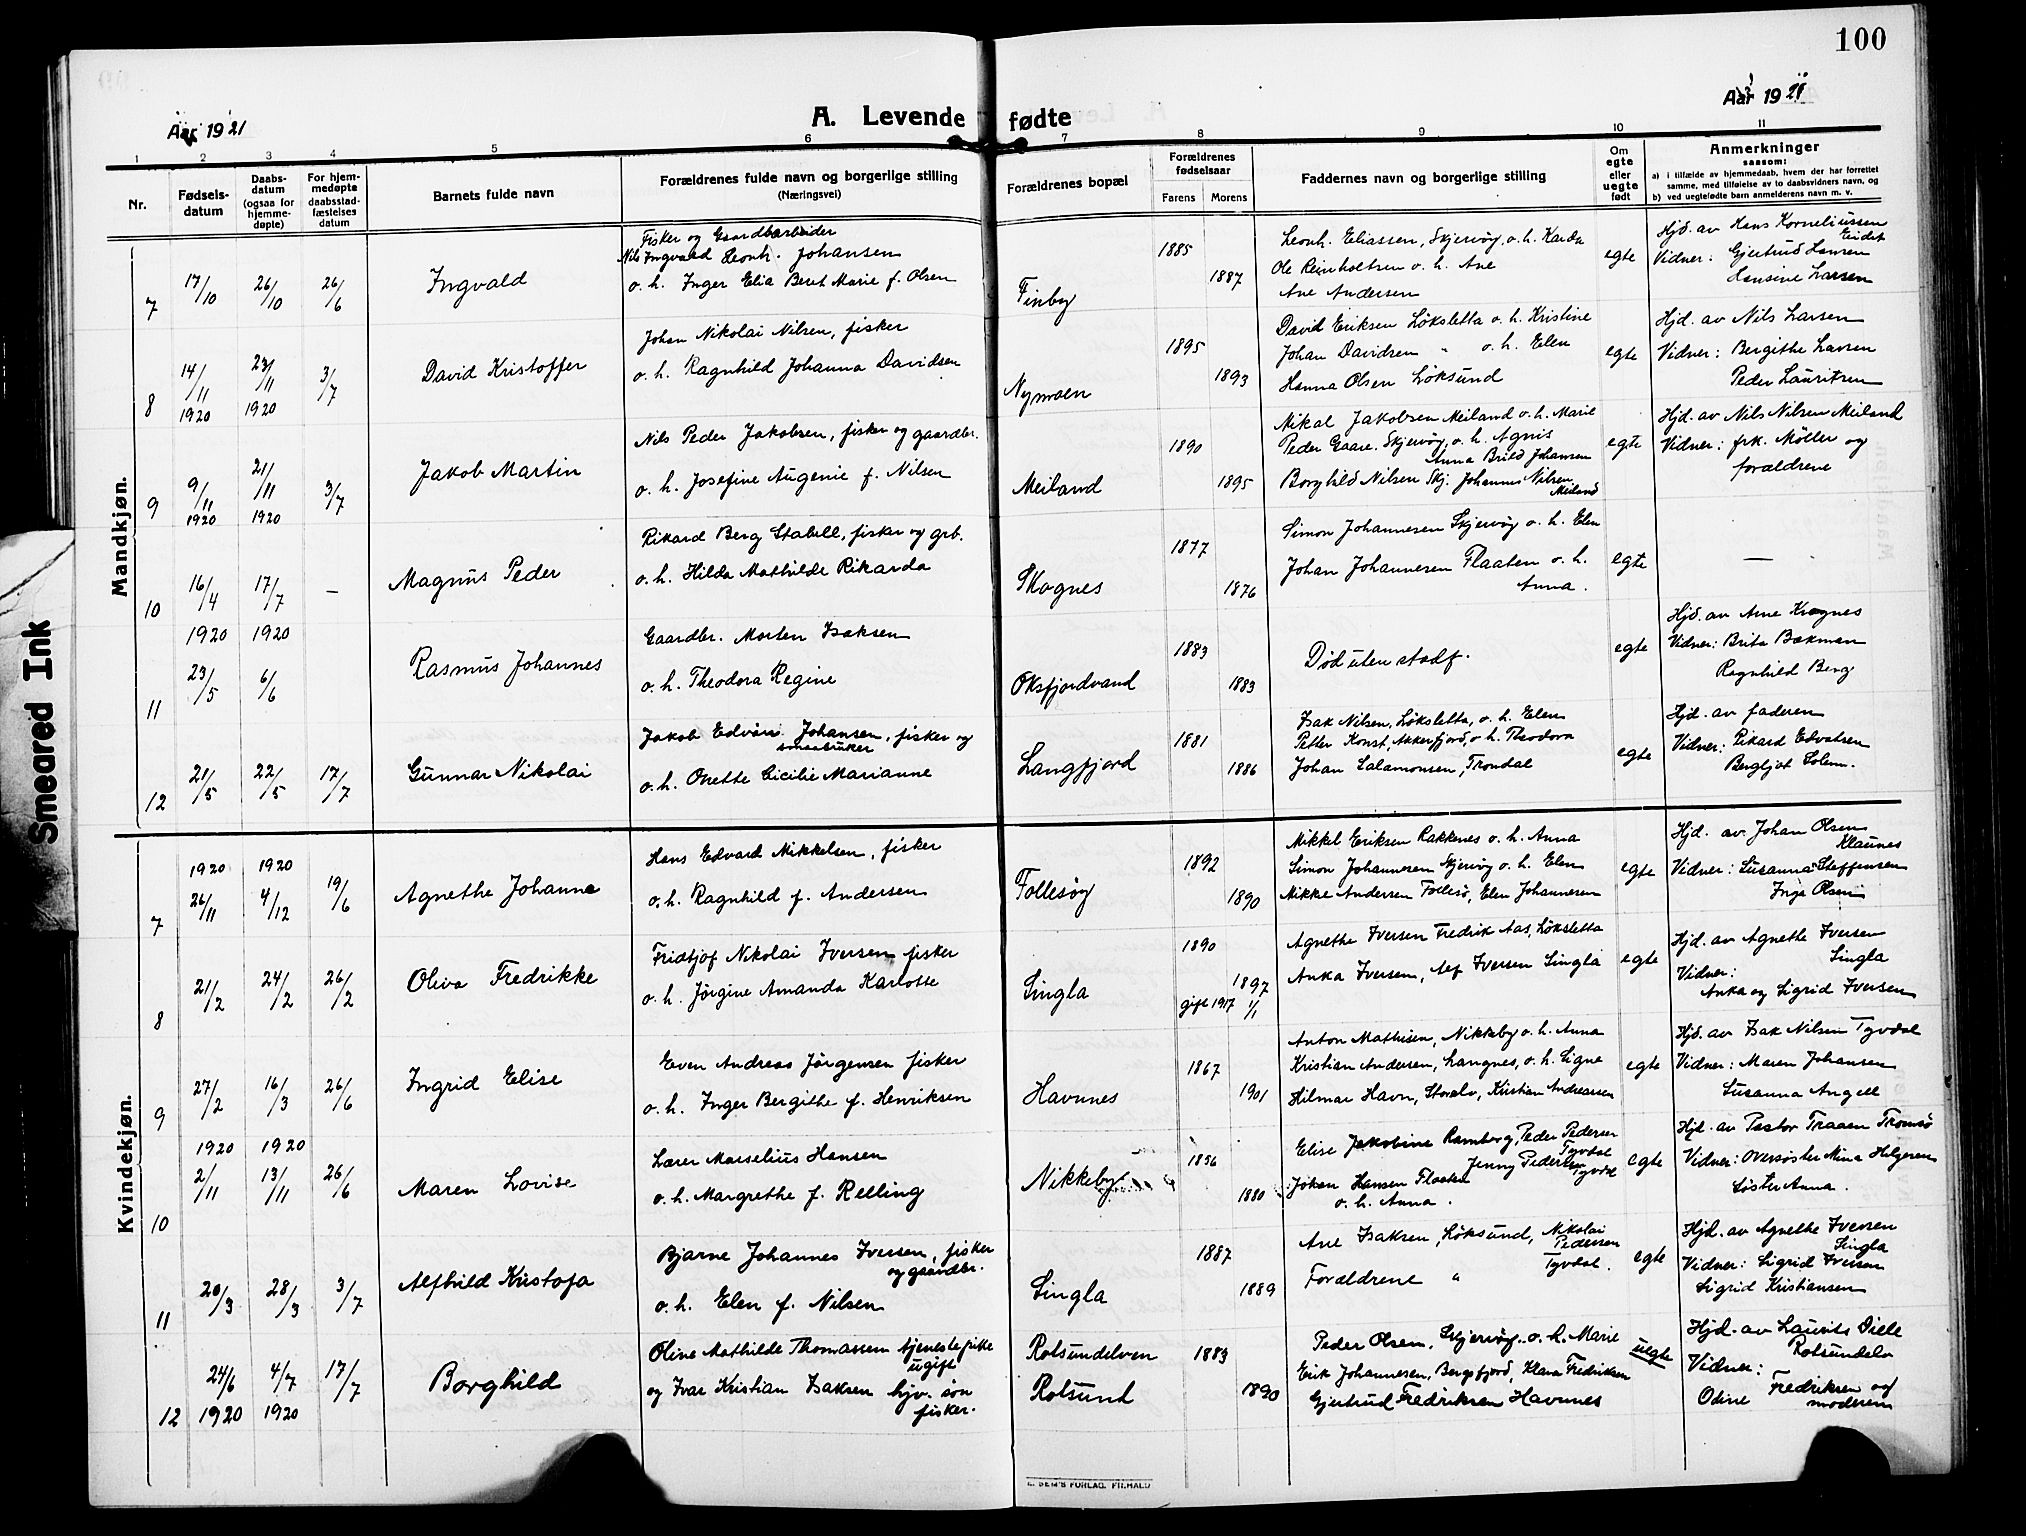 100
Aar 1921
A. Levende fødte
Aar 1921
1 2 3 4 5 6 7 8 9 10 11
Nr.
Fødsels-
datum
Daabs-
datum
(ogsaa for
hjemme-
døpte)
For hjem-
medøpte
daabsstad-
fæstelses
datum
Barnets fulde navn
Forældrenes fulde navn og borgerlige stilling
(Næringsvei)
Forældrenes bopæl
Forældrenes
fødselsaar
Farens Morens
Faddernes navn og borgerlige stilling
Om
egte
eller
uegte
født
Anmerkninger
saasom:
a) i tilfælde av hjemmedaab, hvem der har forrettet
samme, med tilføielse av to daabsvidners navn, og
b) ved uegtefødte barn anmelderens navn m. v.
Mandkjøn.
7 17/10 26/10 26/6 Ingvald
Fisker og Gaardbarbeider
Nils Ingvald Leonh. Johansen
o. h. Inger Elia Beret Marie f. Olsen
Finby
1885 1887
Leonh. Eliassen, Skjervøy, o. h. Karda
Ole Reinholtsen o. h. Ane
Ane Andersen
egte
Hjd. av Hans Korneliussen
Eidet
Vidner: Gjertrud Hansen
Hansine Larsen
8 14/11 1920 23/11 1920 3/7 David Kristoffer
Johan Nikolai Nilsen, fisker
o. h. Ragnhild Johanna Davidsen
Nymoen
1895 1893
David Eriksen Løksletta o. h. Kristine
Johan Davidsen " o. h. Elen
Hanna Olsen Løksund
egte
Hjd. av Nils Larsen
Vidner: Bergithe Larsen
Peder Lauritsen
9 9/11 1920 21/11 1920 3/7 Jakob Martin
Nils Peder Jakobsen, fisker og gaardbr.
o. h. Josefine Augenie f. Nilsen
Meiland
1890 1895
Mikal Jakobsen Meiland o. h. Marie
Peder Gaare, Skjervøy, o. h. Agnis
Anna Brild Johansen
Borghild Nilsen Skj. Johannes Nilsen
Meiland
egte
Hjd. av Nils Nilsen Meiland
Vidner: frk. Møller og
forældrene
10 16/4 17/7 — Magnus Peder
Rikard Berg Stabell, fisker og grb.
o. h. Hilda Mathilde Rikarda
Skognes
1877 1876
Simon Johannesen Skjervøy o. h. Elen
Johan Johannesen Flaaten o. h.
Anna.
egte
—
11 1920 23/5 1920 6/6 Rasmus Johannes
Gaardbr. Morten Isaksen
o. h. Theodora Regine
Oksfjordvand
1883 1883
Død uten stadf.
egte
Hjd. av Arne Kragnes
Vidner: Brita Bækman
Ragnhild Berg
12 21/5 22/5 17/7 Gunnar Nikolai
Jakob Edvin Johansen, fisker og
smaabruker
o. h. Anette Cicilie Marianne
Langfjord
1881 1886
Isak Nilsen, Løksletta, o. h. Elen
Petter Konst, Akkerfjord, o. h. Theodora
Johan Salamonsen, Trondal
egte
Hjd. av faderen
Vidner: Rikard Edvatsen
Bergljot Solem.
Kvindekjøn.
7 1920 26/11 1920 4/12 19/6 Agnethe Johanne
Hans Edvard Mikkelsen, fisker
o. h. Ragnhild f. Andersen
Follesøy
1892 1890
Mikkel Eriksen Rakkenes o. h. Anna
Simon Johannesen Skjervøy o. h. Elen
Mikke Andersen Follesø, Elen Johannesen
egte
Hjd. av Johan Olsen
Klaunes
Vidner: Susanna Steffensen
Inga Olsen
8 21/2 24/2 26/2 Oliva Fredrikke
Fridtjof Nikolai Iversen fisker
o. h. Jørgine Amanda Karlotte
Singla
1890 1897
gift 1917 1/1
Agnethe Iversen Fredrik Aas, Løksletta
Anka Iversen, Alf Iversen Singla
egte
Hjd. av Agnethe Iversen
Singla
Vidner:
Anka og Sigrid Iversen
9 27/2 16/3 26/6 Ingrid Elise
Even Andreas Jørgensen fisker
o. h. Inger Bergithe f. Henriksen
Havnnes
1867 1901
Anton Mathisen, Nikkeby o. h. Anna
Kristian Andersen, Langnes, o. h. Signe
Hilmar Havn, Storelv, Kristian Andreassen
egte
Hjd. av Isak Nilsen Tyvdal
Vidner: Maren Johansen
Susanna Angell
10 1920 2/11 1920 13/11 26/6 Maren Lovise
Lærer Marselius Hansen
o. h. Margrethe f. Relling
Nikkeby
1856 1880
Elise Jakobine Ramberg, Peder Pedersen
Tyvdal
Jenny Pedersen
Tyvdal
Johan Hansen Flaaten
o. h. Anna.
egte
Hjd. av Pastor Traaen Tromsø
Vidner: Oversøster Mina Helgesen
Søster Anna.
11 20/3 28/3 3/7 Alfhild Kristofa
Bjarne Johannes Iversen, fisker
og gaardbr.
o. h. Elen f. Nilsen
Singla
1887 1889
Ane Isaksen, Løksund, Nikolai
Pedersen
Tyvdal.
Forældrene "
egte
Hjd. av Agnethe Iversen
Singla
Vidner: Sigrid Iversen
Sigrid Kristiansen
12 24/6 1920 4/7 1920 17/7 Borghild
Oline Mathilde Thomassen tjenestepike
ugift
og Ivar Kristian Isaksen hjv. søn
fisker.
Rotsundelven
Rotsund
1883 1890
Peder Olsen, Skjervøy. o. h. Marie
Erik Johannesen, Bergsfjord, Klara Fredriksen
Gjertrud Fredriksen Havnnes
uegte
Hjd. av Laurits Viele
Rotsundelv
Vidner:
Odine Fredriksen og
moderen
E. SEM'S FORLAG, FR.HALD
Smeared Ink